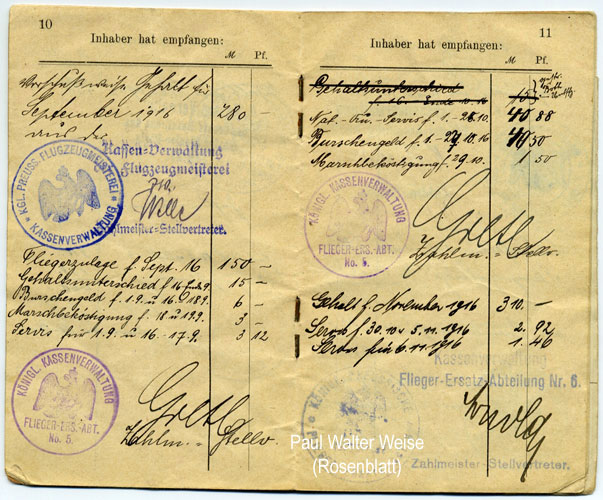 10
Inhaber hat empfangen:
M Pf.
Vorschußweise Gehalt für
September 1916 280
aus der
Kassen-Verwaltung
Flugzeugmeisterei
Zahlmeister-Stellvertreter.
KGL. PREUSS. FLUGZEUGMEISTEREI
KASSENVERWALTUNG
Fliegerzulage f. Sept. 16 150 –
Gehaltsunterschied f. 15 –
Burschengeld f. 1.9. u. 16. 6 –
Marschbeköstigung f. 18 u. 19.9. 3 –
Servis für 1.9. u. 16.-17.9. 3 12
KÖNIGL. KASSENVERWALTUNG
FLIEGER-ERS.-ABT.
No. 5.
Zahlm.-Stellv.
11
Inhaber hat empfangen:
M Pf.
Gehaltsunterschied
15
Servis f. 1.- 10. 40 88
Burschengeld f. 1.- 10.16 50
Marschbeköstigung f. 29.10. 1 50
KÖNIGL. KASSENVERWALTUNG
FLIEGER-ERS.-ABT.
No. 5.
Zahlm.-Stellv.
Gehalt f. November 1916 310. –
Servis f. 30.10 u. 5.11.1916 2. 92
Servis für 6.11.1916 1. 46
Kassenverwaltung
Flieger-Ersatz-Abteilung Nr. 6.
Zahlmeister-Stellvertreter.
Paul Walter Weise
(Rosenblatt)